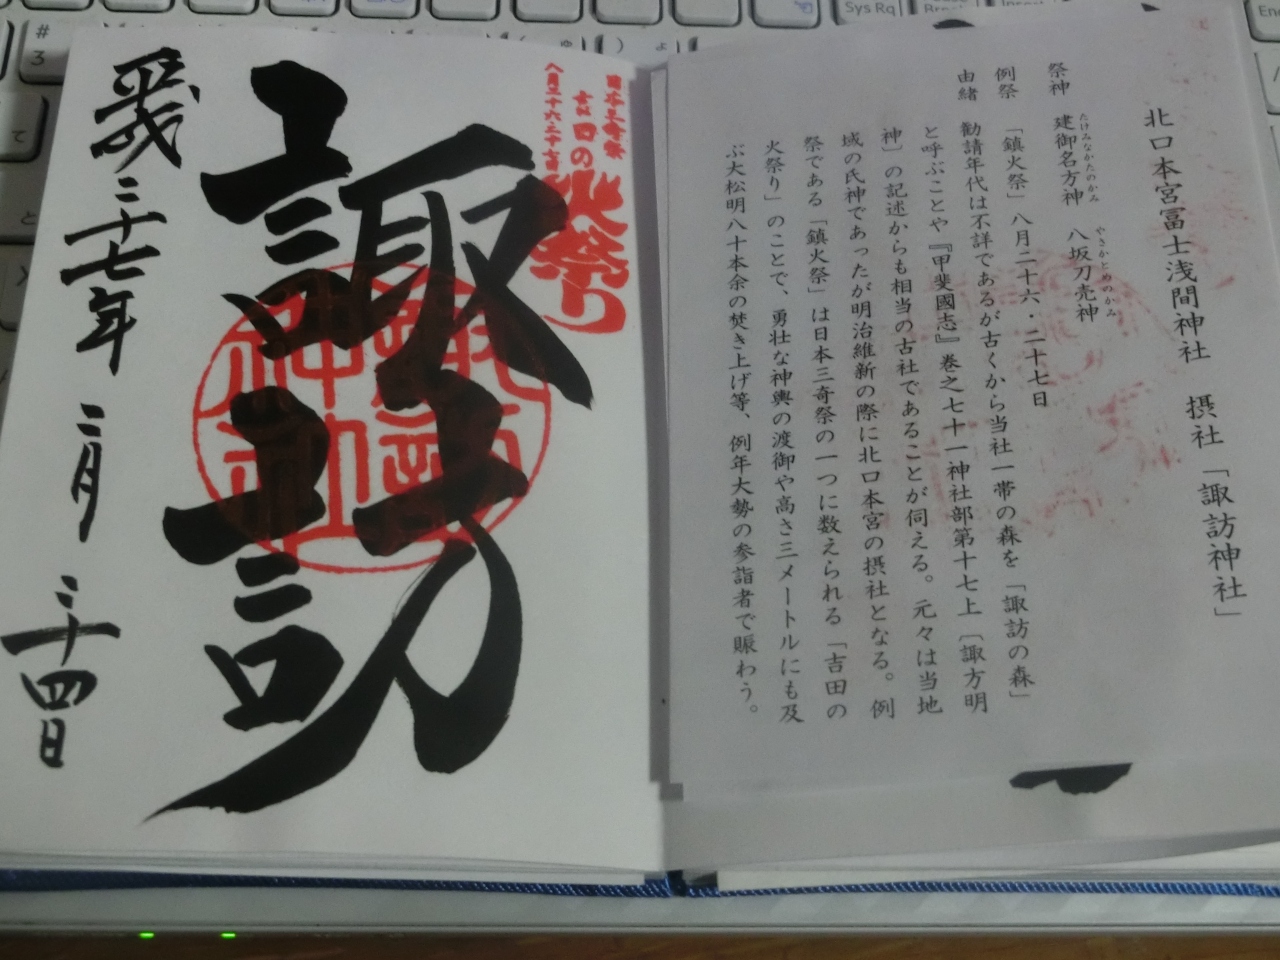 北口本宮冨士浅間神社 摂社「諏訪神社」
祭神 建御名方神 八坂刀売神
たけみなかたのかみ やさかとめのかみ
例祭 「鎮火祭」八月二十六・二十七日
由緒 勧請年代は不詳であるが古くから当社一帯の森を「諏訪の森」
と呼ぶことや『甲斐國志』巻之七十一神社部第十七上〔諏方明
神〕の記述からも相当の古社であることが伺える。元々は当地
域の氏神であったが明治維新の際に北口本宮の摂社となる。例
祭である「鎮火祭」は日本三奇祭の一つに数えられる「吉田の
火祭り」のことで、勇壮な神輿の渡御や高さ三メートルにも及
ぶ大松明八十本余の焚き上げ等、例年大勢の参詣者で賑わう。
日本三奇祭
吉田の火祭り
八月二十六・二十七日
諏訪
諏訪神社
平成二十七年 二月 二十四日
Sys Rq
#
3
て
と